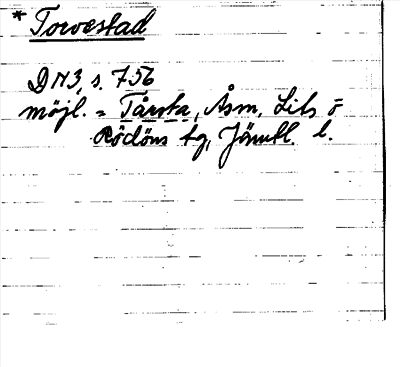 * Torvestad
DN3, s. 756
möjl. = Tårsta, Åsm, Lits o
Rödöns tg, Jämtl. l.